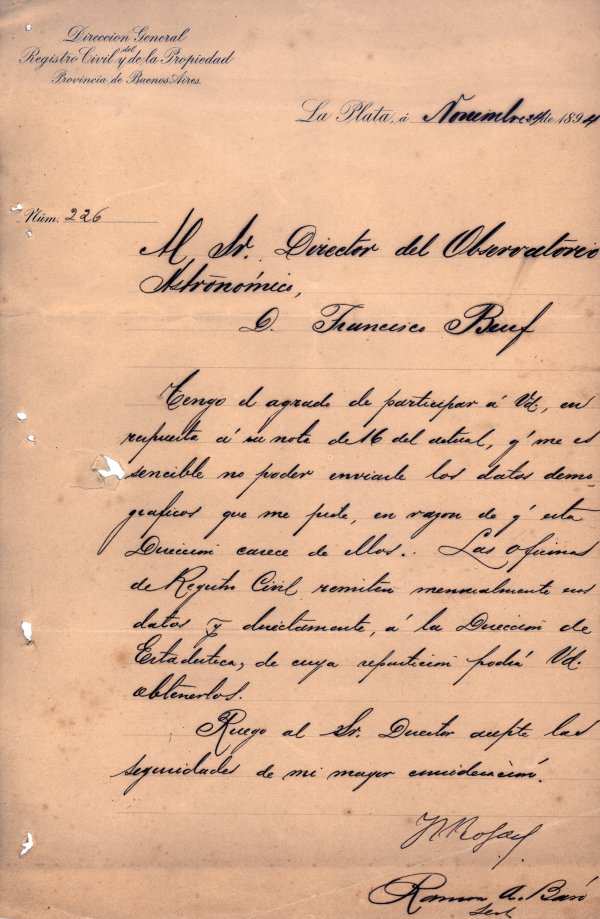 Direccion General
del
Registro Civil y de la Propiedad
Provincia de Buenos Aires.
La Plata, á Noviembre 24 de 1894
Núm. 226
Al Sr. Director del Observatorio
Astronómico,
D. Francisco Beuf
Tengo el agrado de participar á Vd., en
respuesta á su nota de 16 del actual, q' me es
sencible no poder enviarle los datos demo-
graficos que me pide, en razon de q' esta
Direccion carece de ellos. Las oficinas
de Registro Civil remiten mensualmente sus
datos y directamente, á la Direccion de
Estadistica, de cuya reparticion podrá Vd.
obtenerlos.
Ruego al Sr. Director acepte las
seguridades de mi mayor consideración.
Ramon A. Baró